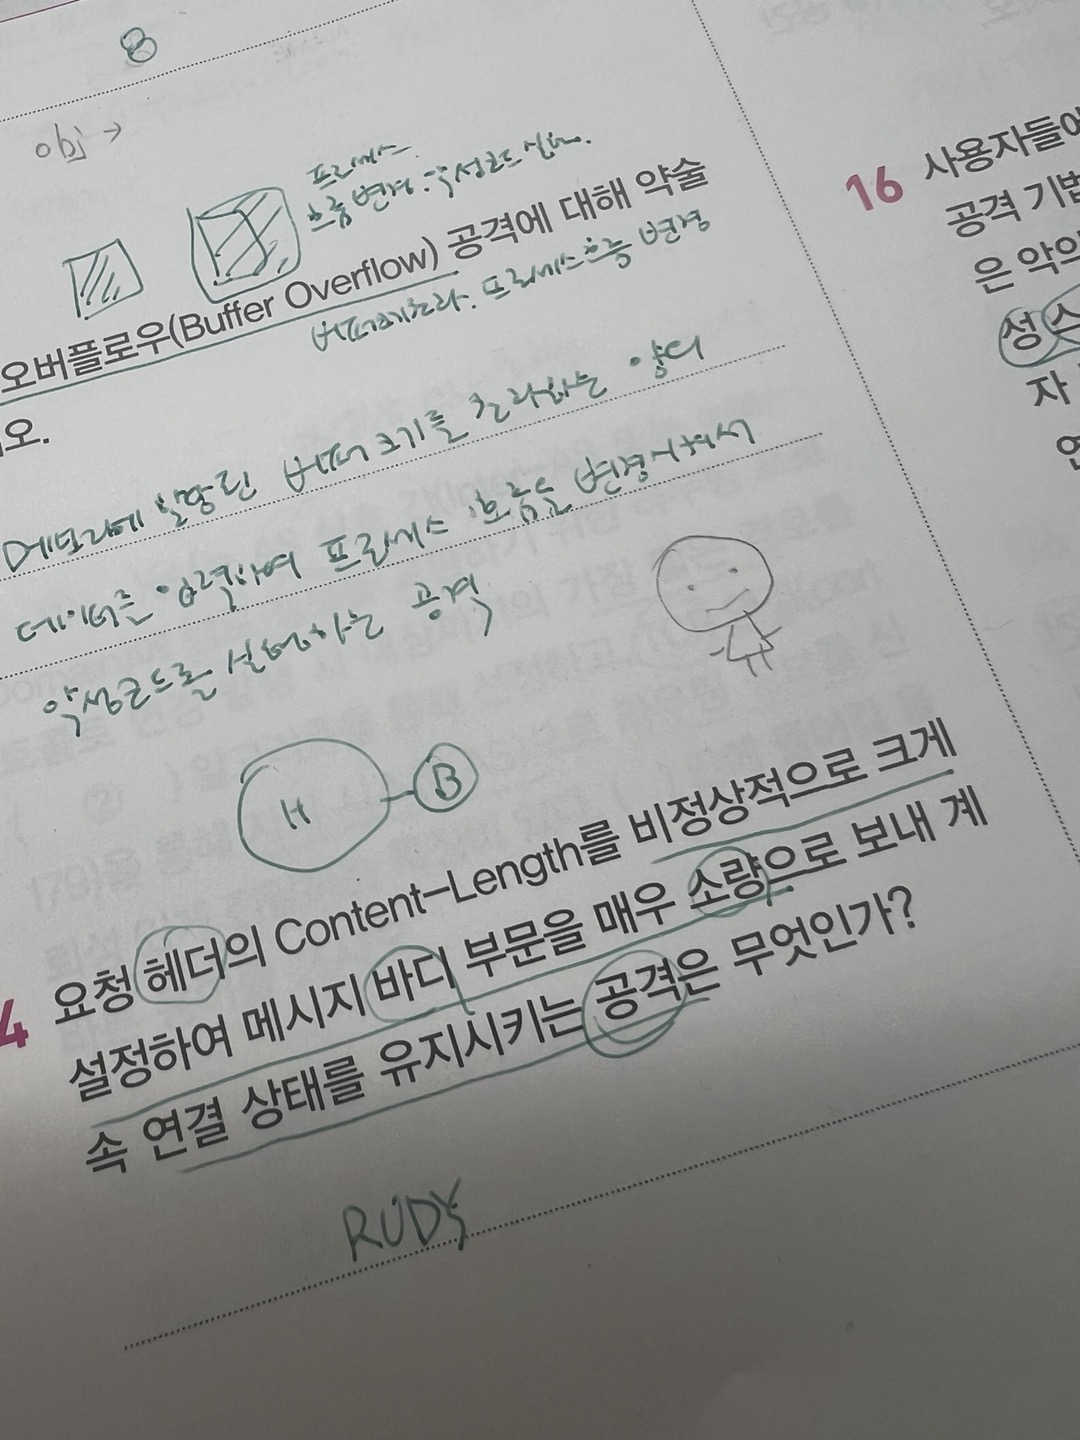 8
프로세스
흐름변경. 악성코드 실행.
오버플로우(Buffer Overflow) 공격에 대해 약술
버퍼크기초과. 프로세스흐름 변경
오.
메모리에 할당된 버퍼 크기를 초과하는 양의
데이터를 입력하여 프로세스 흐름을 변경시켜서
악성코드를 실행하는 공격
H
B
4 요청 헤더의 Content-Length를 비정상적으로 크게
설정하여 메시지 바디 부문을 매우 소량으로 보내 계
속 연결 상태를 유지시키는 공격은 무엇인가?
RUDY
16 사용자들이
공격 기법
은 악의
성
자